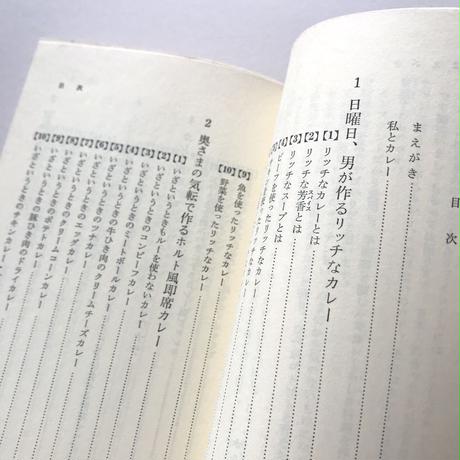 目次
まえがき
私とカレー
1 日曜日、男が作るリッチなカレー
【1】リッチなカレーとは
【2】リッチな芳香とは
スメル
【3】リッチなスープとは
【4】ビーフを使ったリッチなカレー
【9】魚を使ったリッチなカレー
【10】野菜を使ったリッチなカレー
2 奥さまの気転で作るホルト風即席カレー
【1】いざというときもルーを使わないカレー
【2】いざというときのコンビーフカレー
【3】いざというときのミートボールカレー
【4】いざというときの牛ひき肉のカレー
【5】いざというときのツナカレー
【6】いざというときのエッグカレー
【7】いざというときのクリームチーズカレー
【8】いざというときのクリームコーンカレー
【9】いざというときのポテトカレー
【10】いざというときの豚ひき肉のドライカレー
いざというときのチキンカレー
目次